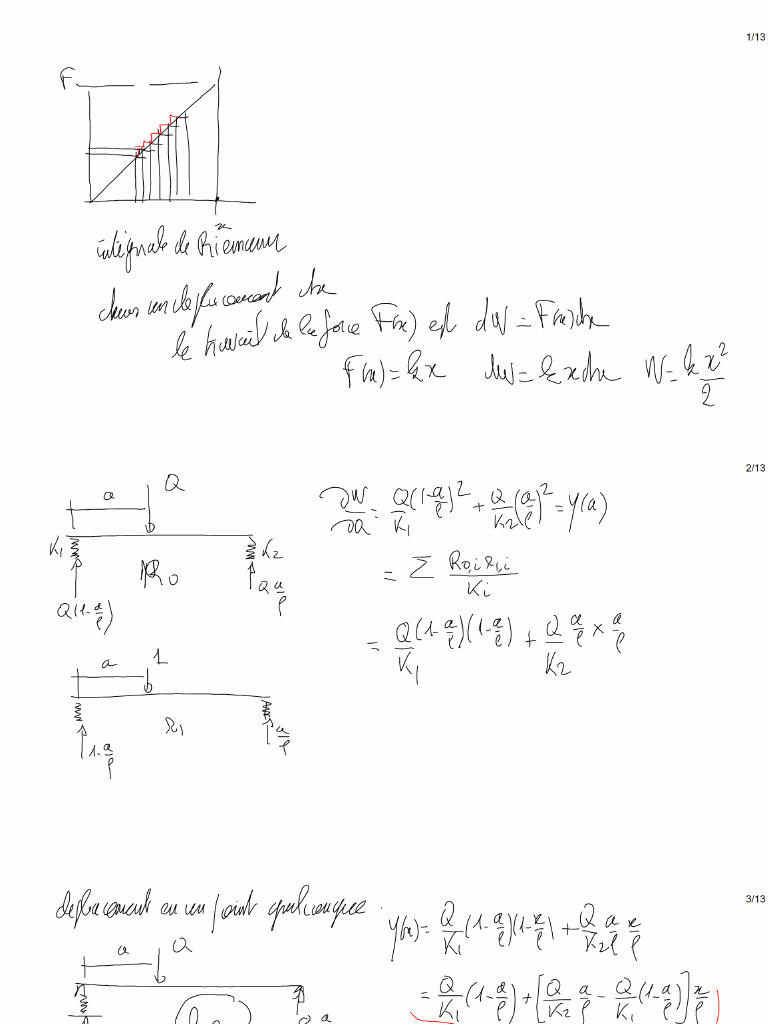 1/13
F
x
intégrale de Riemann
dans un deplacement dx
le travail de la force F(x) est dW = F(x)dx
F(x) = kx dW = kxdx W = k x²/2
2/13
a Q
K1 K2
R0
Q(1-a/l) Q a/l
∂W/∂Q = Q/K1 (1-a/l)² + Q/K2 (a/l)² = y(a)
= Σ R0,i R1,i / Ki
= Q/K1 (1-a/l)(1-a/l) + Q/K2 a/l × a/l
a 1
R1
1-a/l a/l
3/13
deplacement en un point quelconque.
y(x) = Q/K1 (1-a/l)(1-x/l) + Q/K2 a/l x/l
a Q
= Q/K1 (1-a/l) + [Q/K2 a/l - Q/K1 (1-a/l)] x/l